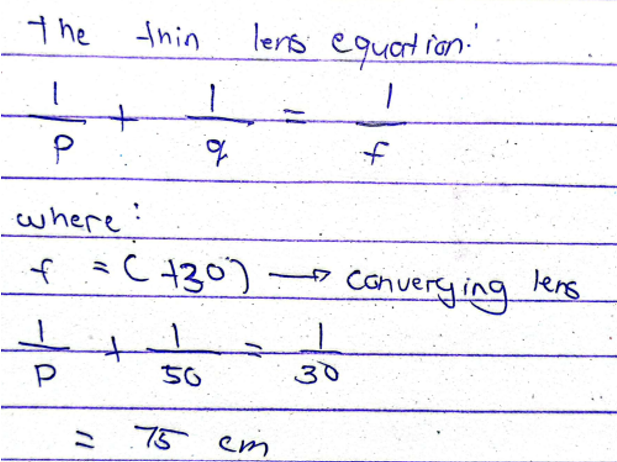 The thin lens equation:
1/p + 1/q = 1/f
where:
f = (+30) → converging lens
1/p + 1/50 = 1/30
= 75 cm